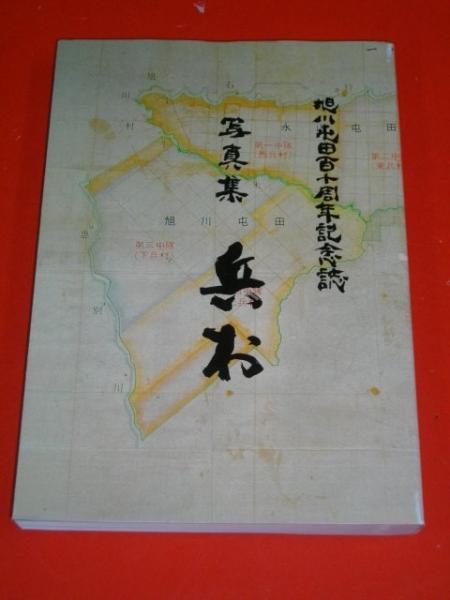 旭川屯田百十周年記念誌
写真集
兵村
旭川村
石
永
屯田
第一中隊
(西兵村)
旭川屯田
第三中隊
(下兵村)
別
川